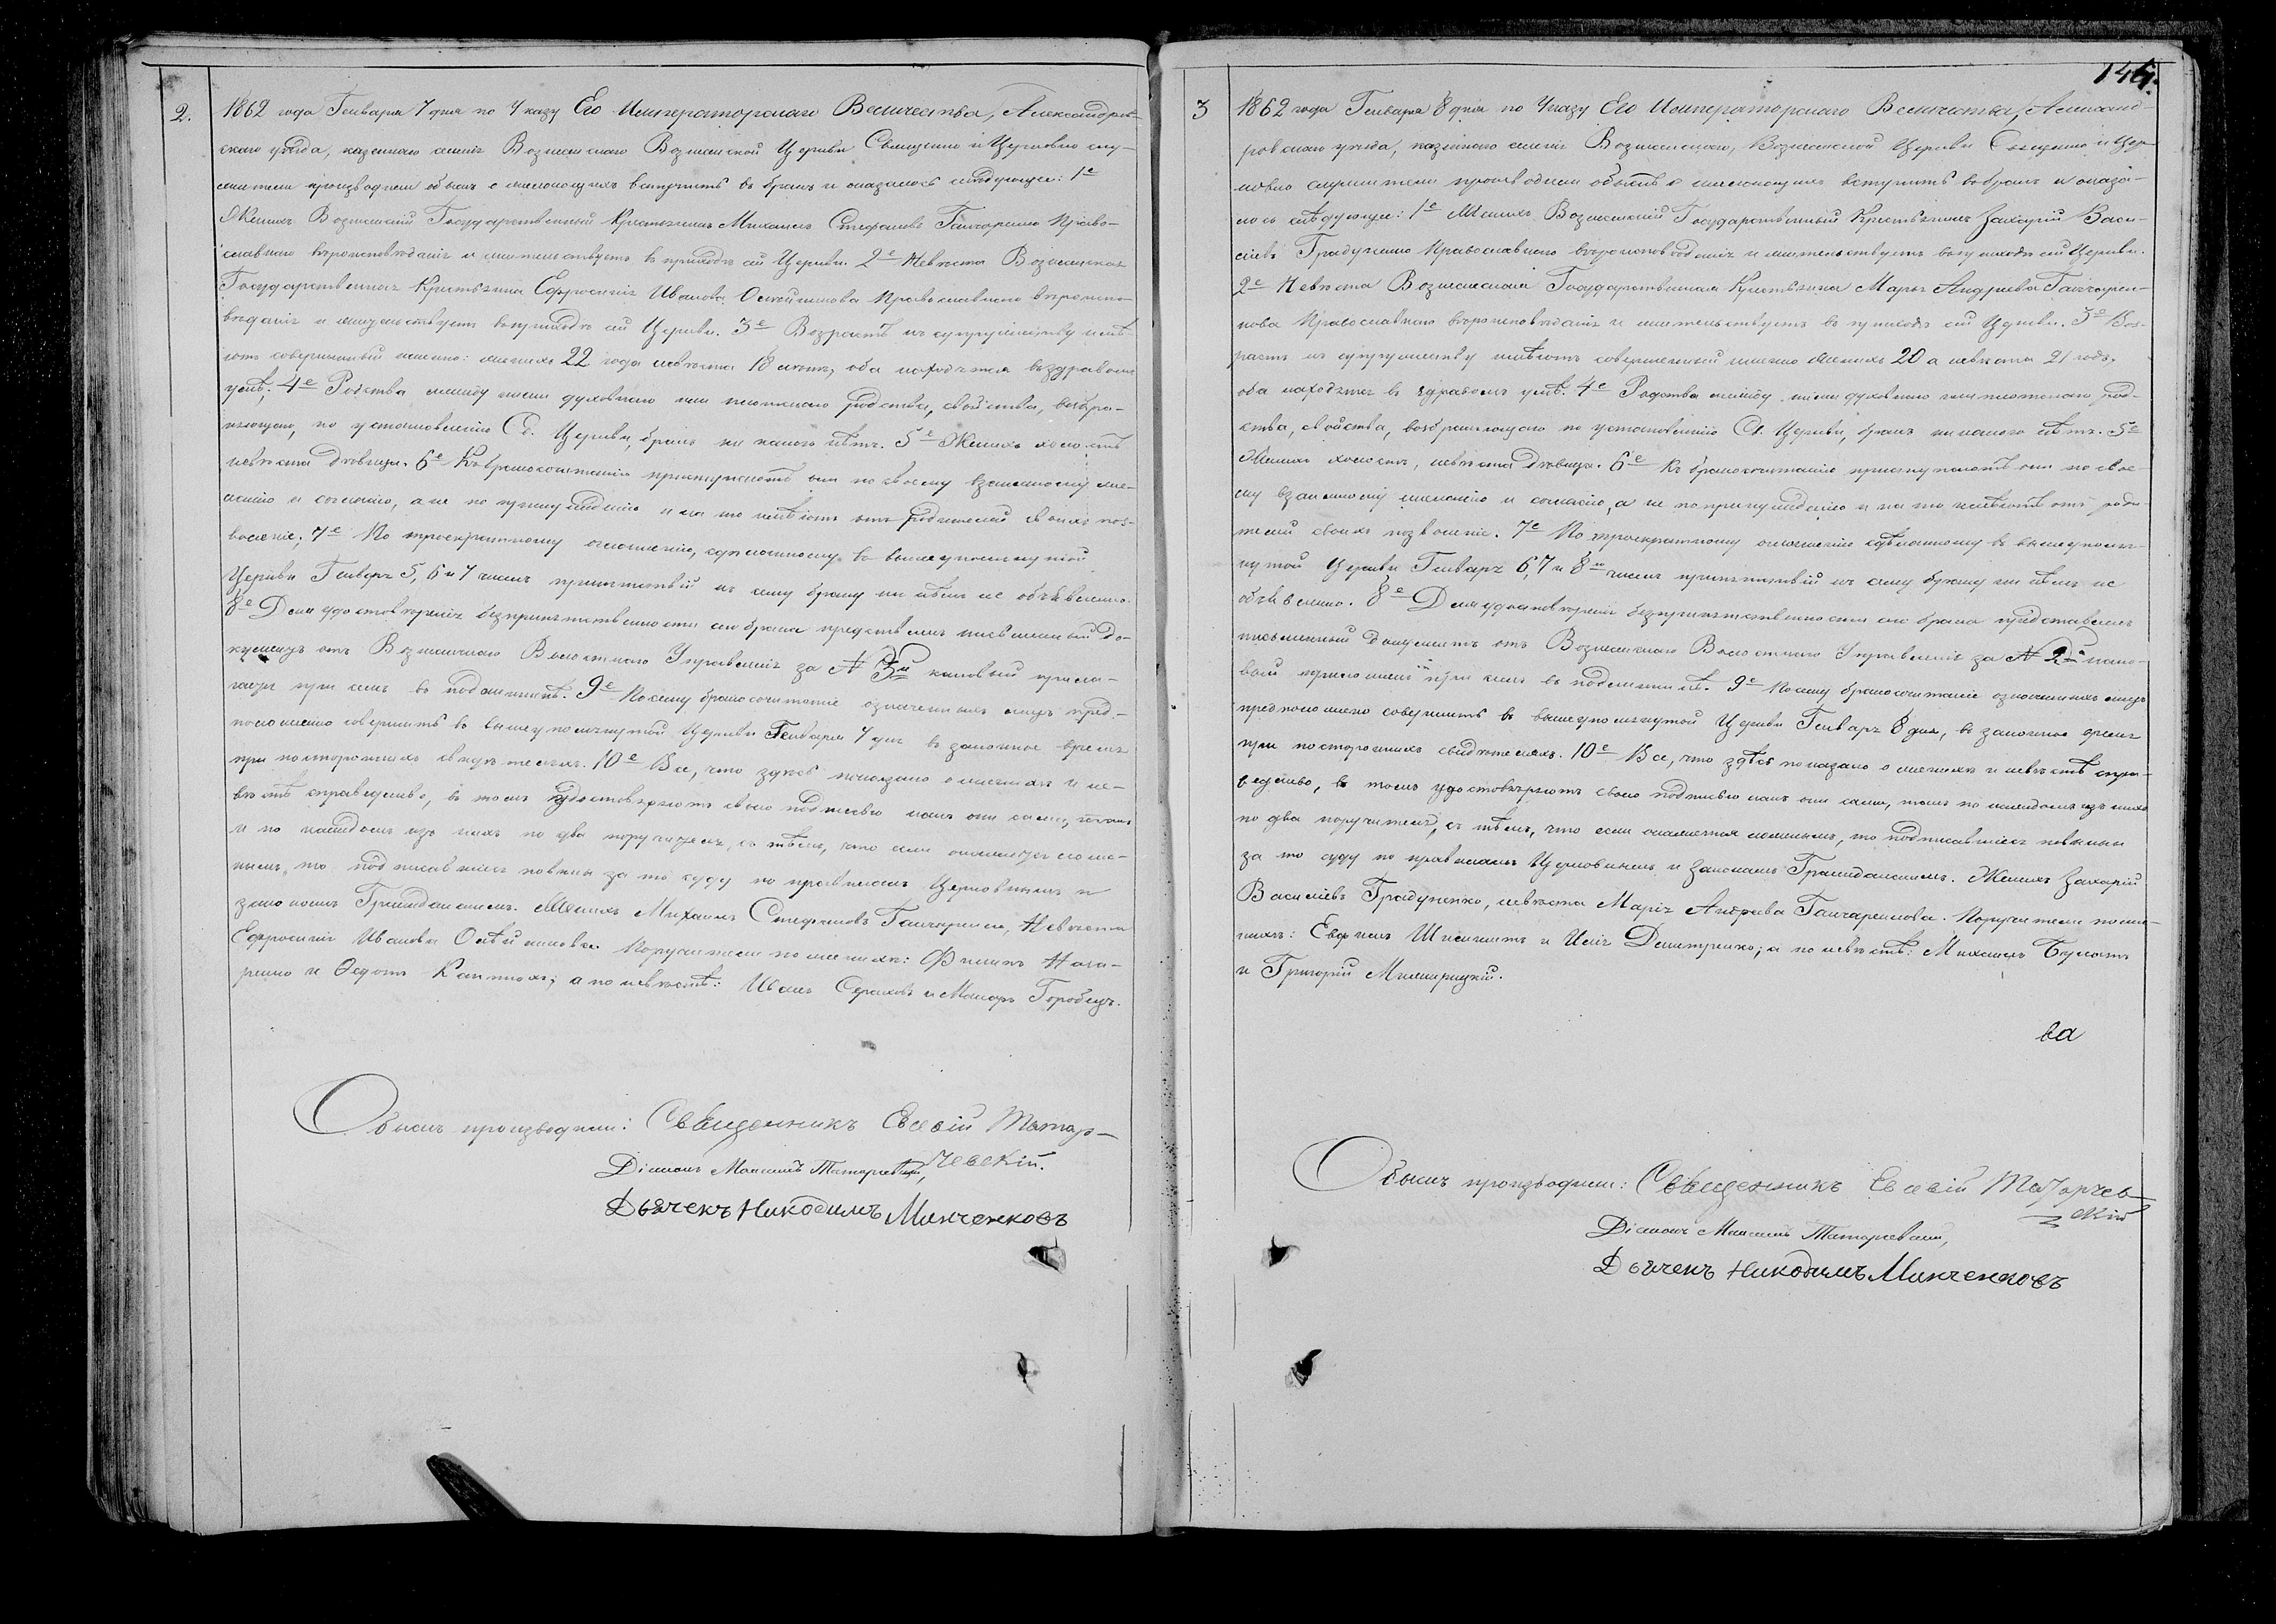 2.
1862 года Генваря 7 дня по Указу Его Императорскаго Величества, Александров-
скаго уезда, казеннаго селенія Вознесенскаго Вознесенской Церкви Священно и Церковно слу-
жители производили обыскъ о желающихъ вступить въ бракъ и оказалось слѣдующее: 1е
Женихъ Вознесенскій Государственный Крестьянинъ Михаилъ Стефановъ Ганчаренко Право-
славнаго вѣроисповѣданія и жительствуетъ въ приходѣ сей Церкви. 2е Невѣста Вознесенская
Государственная Крестьянка Ефросинія Иванова Православнаго вѣроиспо-
вѣданія и жительствуетъ въ приходѣ сей Церкви. 3е Возрастъ къ супружеству имѣ-
ютъ совершенный именно: женихъ 22 года невѣста 18 лѣтъ, оба находятся въ здравомъ
умѣ; 4е Родства между ними духовнаго или плотскаго родства, свойства, возбра-
няющаго, по установленію Св. Церкви, бракъ ни какого нѣтъ. 5е Женихъ холостъ
невѣста дѣвица. 6е Къ бракосочетанію приступаютъ они по своему взаимному же-
ланію и согласію, а не по принужденію и на то имѣютъ отъ родителей своихъ поз-
воленіе; 7е По троекратному оглашенію, сдѣланному въ вышеупомянутой
Церкви Генваря 5, 6 и 7 чиселъ препятствій къ сему браку ни кѣмъ не объявлено.
8е Для удостовѣренія безпрепятственности сего брака представленъ письменный до-
кументъ отъ Вознесенскаго Волостнаго Управленія за № 3й каковый прила-
гаю при семъ въ подлинникѣ. 9е По сему бракосочетаніе означенныхъ лицъ пред-
положено совершить въ вышеупомянутой Церкви Генваря 7 дня въ законное время
при постороннихъ свидѣтеляхъ. 10е Все, что здѣсь показано о женихѣ и не-
вѣстѣ справедливо, въ томъ удостовѣряютъ своею подписью какъ они сами, такъ
и по каждомъ изъ нихъ по два поручителя, съ тѣмъ, что если окажется лож-
нымъ, то подписавшіеся повинны за то суду по правиламъ Церковнымъ и
законамъ Гражданскимъ. Женихъ Михаилъ Стефановъ Ганчаренко, Невѣста
Ефросинія Иванова Поручители по женихѣ: Филипъ
и Федотъ а по невѣстѣ: Иванъ и Макаръ Горобецъ.
Обыскъ производили: Священникъ Евсѣвій Татар-
чевскій.
Діаконъ Максимъ Татаревскій,
Дьячекъ Никодимъ Минченковъ
144.
3
1862 года Генваря 8 дня по Указу Его Императорскаго Величества, Александ-
ровскаго уѣзда, казеннаго селенія Вознесенскаго, Вознесенской Церкви Священно и Цер-
ковно служители производили обыскъ о желающихъ вступить въ бракъ и оказа-
лось слѣдующее: 1е Женихъ Вознесенскій Государственный Крестьянинъ Захарій Васи-
ліевъ Градуненко Православнаго вѣроисповѣданія и жительствуетъ въ приходѣ сей Церкви.
2е Невѣста Вознесенская Государственная Крестьянка Марія Андреева Ганчарен-
кова Православнаго вѣроисповѣданія и жительствуетъ въ приходѣ сей Церкви. 3е Воз-
растъ къ супружеству имѣютъ совершенный именно женихъ 20 а невѣста 21 годъ.
оба находятся въ здравомъ умѣ. 4е Родства между ними духовнаго или плотскаго род-
ства, свойства, возбраняющаго по установленію Св. Церкви, бракъ ни какого нѣтъ. 5е
Женихъ холостъ, невѣста дѣвица. 6е Къ бракосочетанію приступаютъ они по свое-
му взаимному желанію и согласію, а не по принужденію и на то имѣютъ отъ роди-
телей своихъ позволеніе. 7е По троекратному оглашенію сдѣланному въ вышеупомя-
нутой Церкви Генваря 6, 7 и 8го чиселъ препятствій къ сему браку ни кѣмъ не
объявлено. 8е Для удостовѣренія безпрепятственности сего брака представленъ
письменный документъ отъ Вознесенскаго Волостнаго Управленія за № 2й како-
вый приложенъ при семъ въ подлинникѣ. 9е По сему бракосочетаніе означенныхъ лицъ
предположено совершить въ вышеупомянутой Церкви Генваря 8 дня, въ законное время
при постороннихъ свидѣтеляхъ. 10е Все, что здѣсь показано о женихѣ и невѣстѣ спра-
ведливо, въ томъ удостовѣряютъ своею подписью какъ они сами, такъ по каждомъ изъ нихъ
по два поручителя, съ тѣмъ, что если окажется ложнымъ, то подписавшіеся повинны
за то суду по правиламъ Церковнымъ и законамъ Гражданскимъ. Женихъ Захарій
Василіевъ Градуненко, невѣста Марія Андреева Ганчаренкова. Поручители по же-
нихѣ: Ефимъ и Илія Дмитренко; а по невѣстѣ: Михаилъ Булатъ
и Григорій Мимирицкій.
ва
Обыскъ производили: Священникъ Евсѣвій Татарчев-
скій
Діаконъ Максимъ Татаревскій,
Дьячекъ Никодимъ Минченковъ